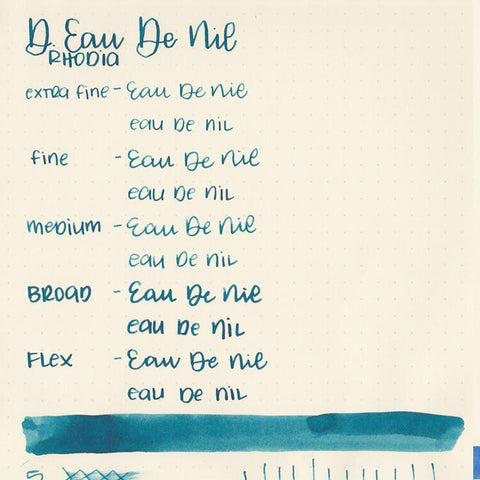 D. Eau De Nil
RHODIA
extra fine - Eau De Nil
eau De nil
fine - Eau De Nil
eau De nil
medium - Eau De Nil
eau De nil
BROAD - Eau De Nil
eau De nil
FLEX - Eau De Nil
eau De nil